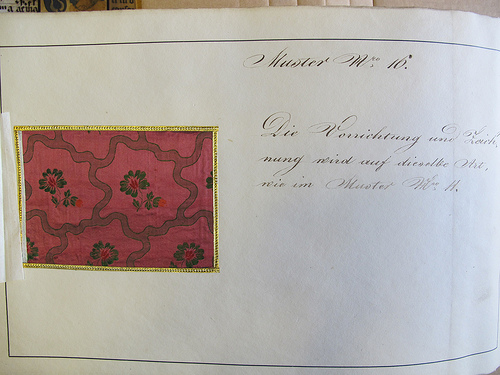 Muster Nro 16.
Die Vorrichtung und Zeich,
nung wird auf dieselbe Art,
wie im Muster Nro 11.